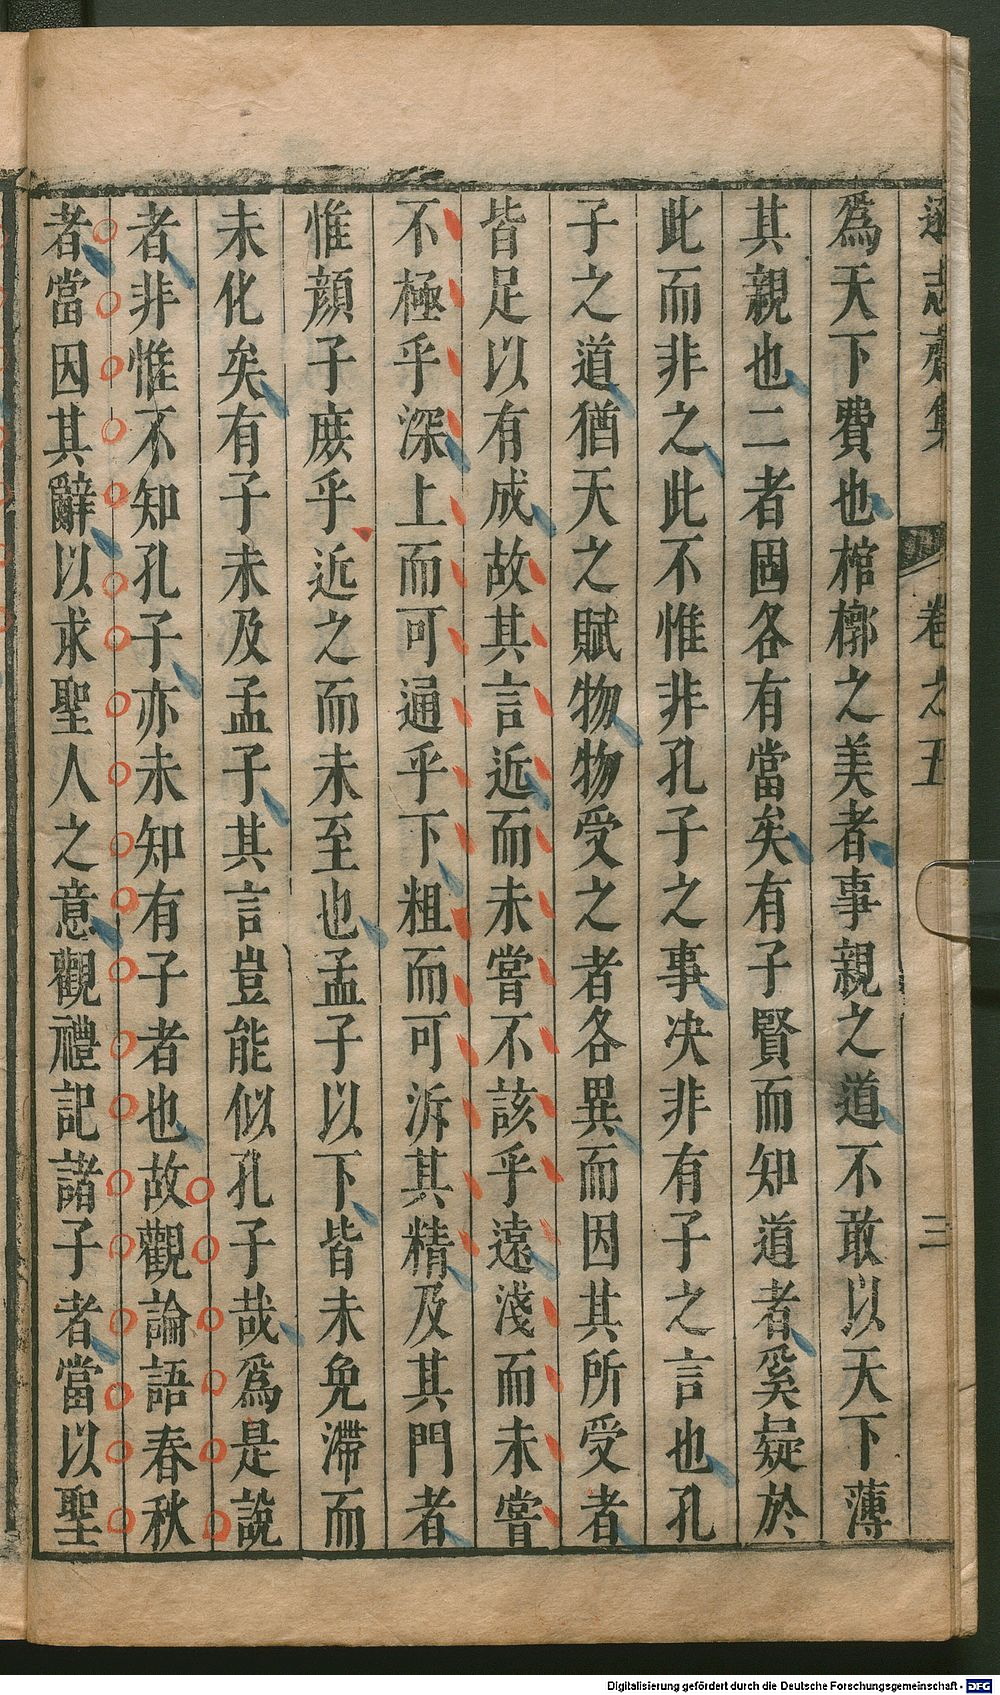 遜志齋集 卷之五 三
爲天下費也棺槨之美者事親之道不敢以天下薄
其親也二者固各有當矣有子賢而知道者奚疑於
此而非之此不惟非孔子之事决非有子之言也孔
子之道猶天之賦物物受之者各異而因其所受者
皆足以有成故其言近而未嘗不該乎遠淺而未嘗
不極乎深上而可通乎下粗而可泝其精及其門者
惟顔子庻乎近之而未至也孟子以下皆未免滯而
未化矣有子未及孟子其言豈能似孔子哉爲是說
者非惟不知孔子亦未知有子者也故觀論語春秋
者當因其辭以求聖人之意觀禮記諸子者當以聖
Digitalisierung gefördert durch die Deutsche Forschungsgemeinschaft - DFG